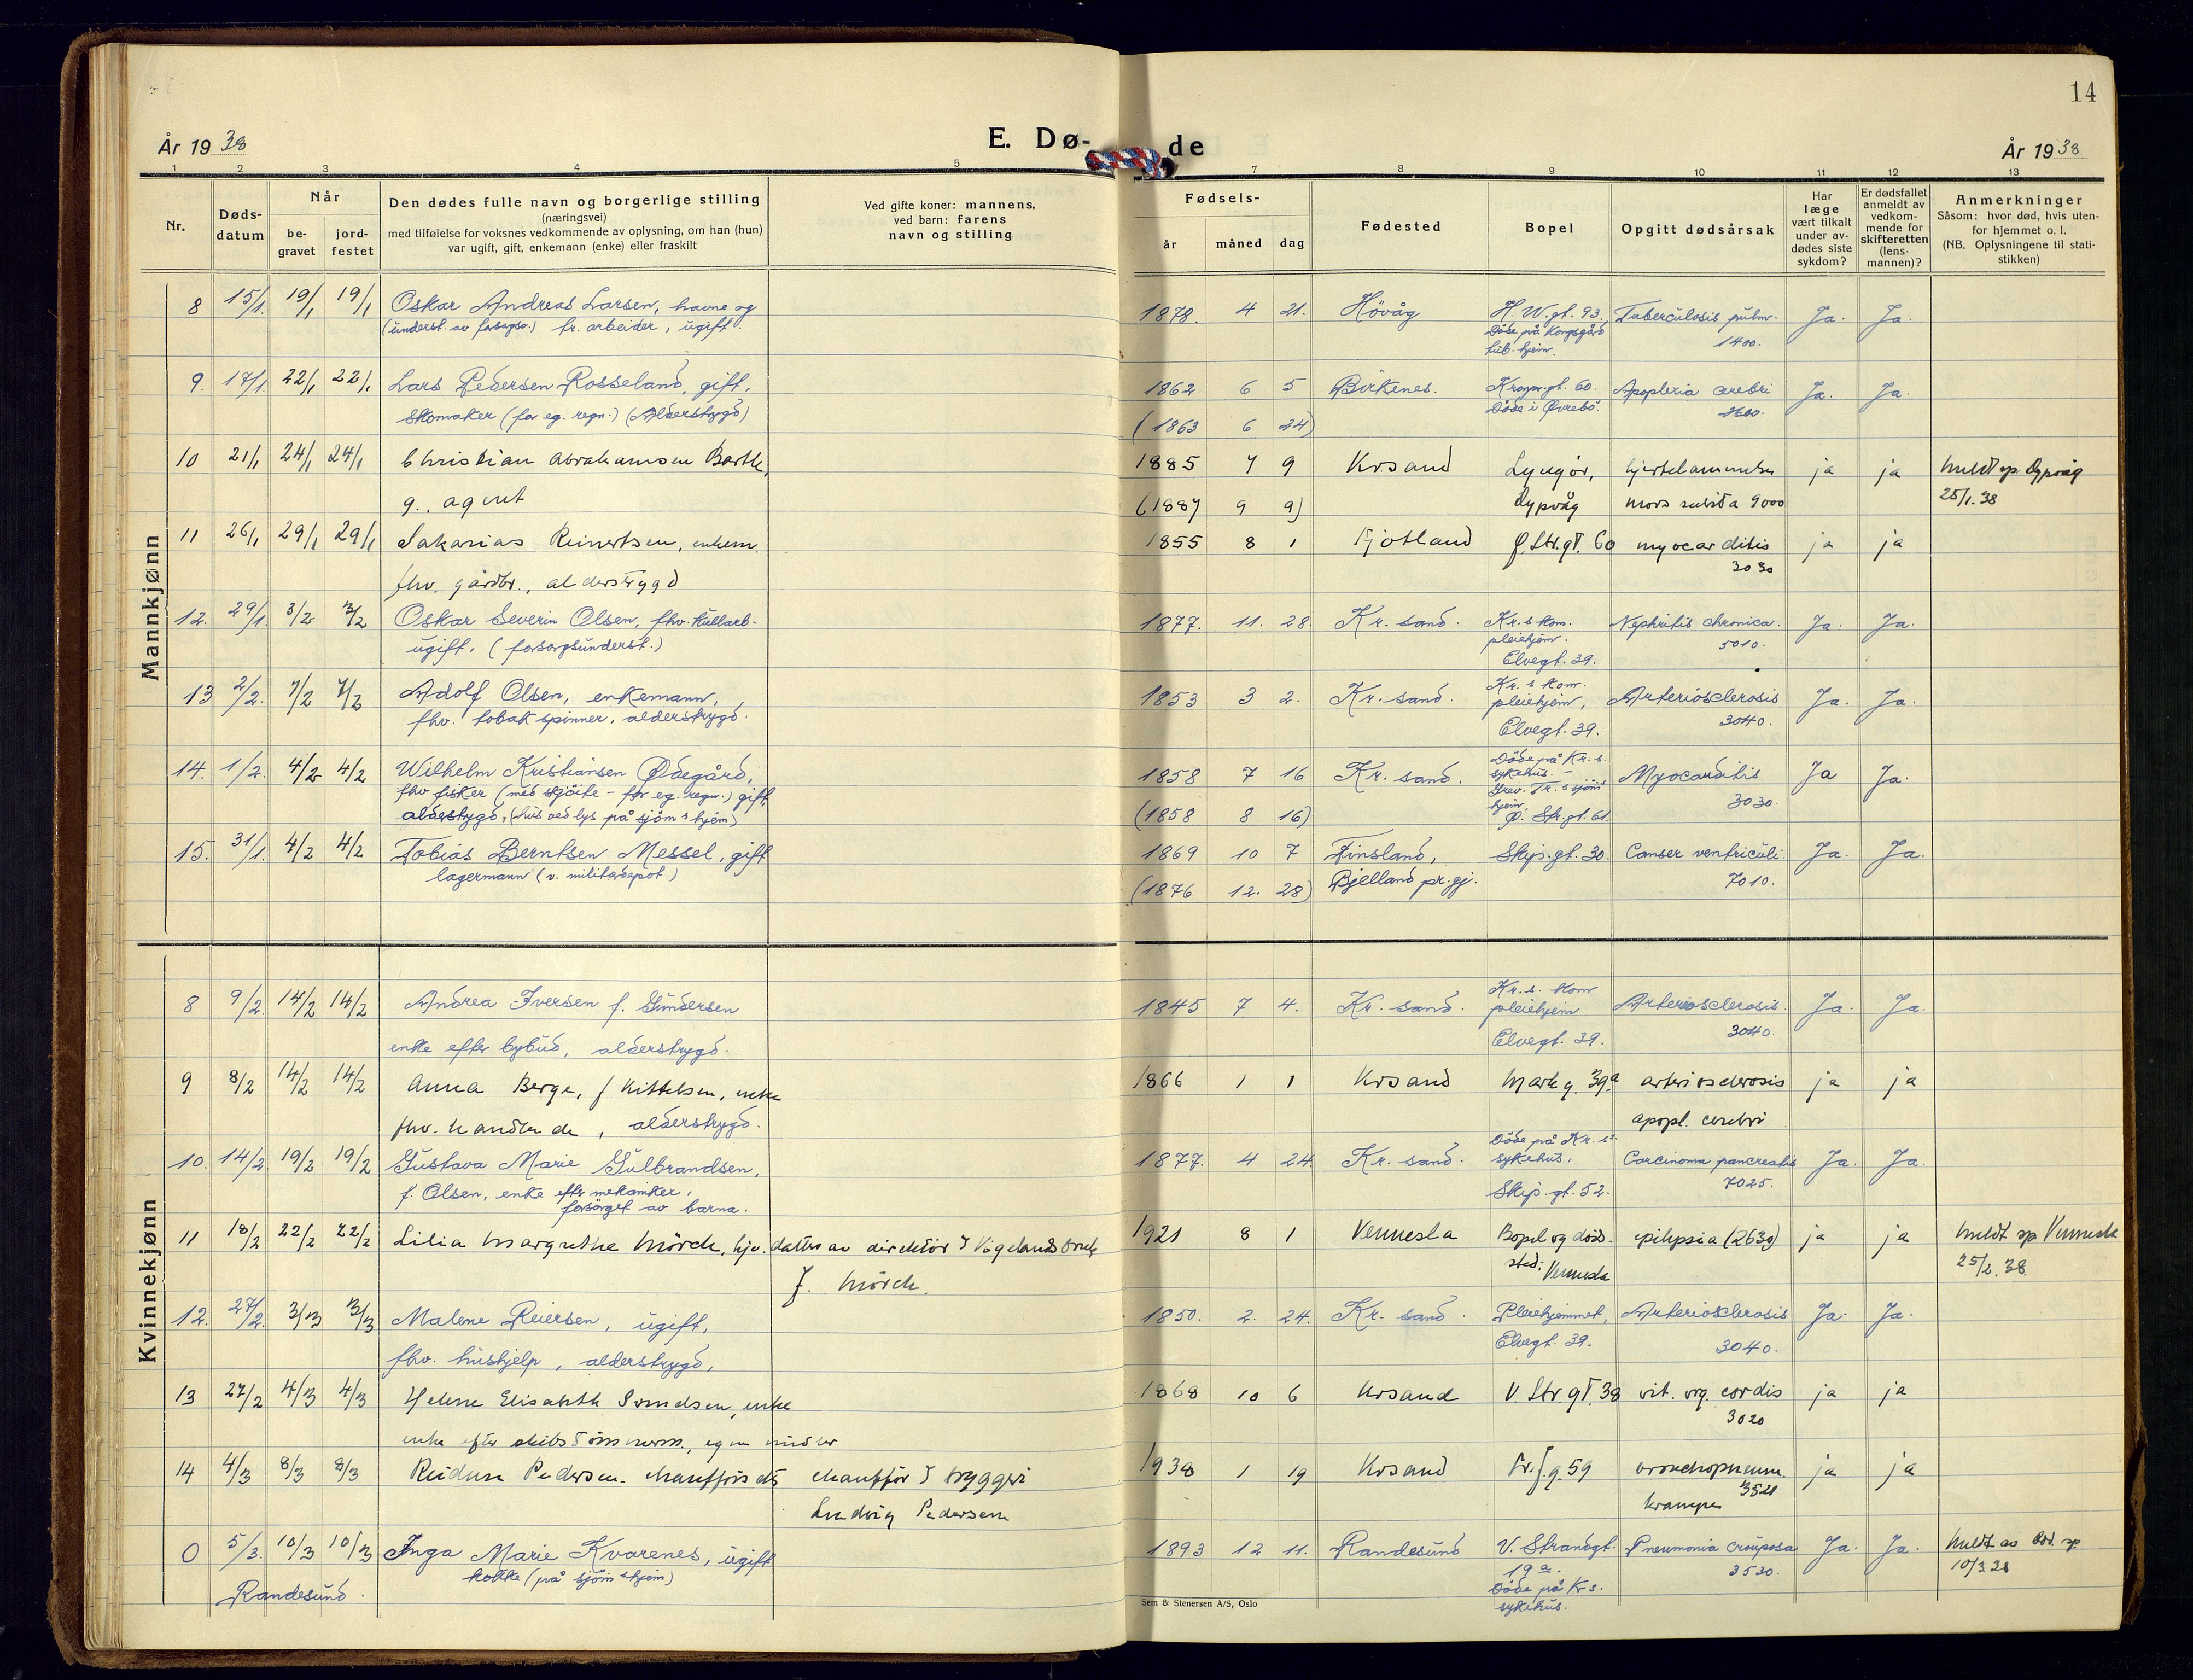 14
År 1938
E. Dø-
de
År 1938
1 2 3 4 5 7 8 9 10 11 12 13
Nr.
Døds-
datum
Når
be-
gravet
jord-
festet
Den dødes fulle navn og borgerlige stilling
(næringsvei)
med tilføielse for voksnes vedkommende av oplysning, om han (hun)
var ugift, gift, enkemann (enke) eller fraskilt
Ved gifte koner: mannens,
ved barn: farens
navn og stilling
Fødsels-
år måned dag
Fødested
Bopel
Opgitt dødsårsak
Har
læge
vært tilkalt
under av-
dødes siste
sykdom?
Er dødsfallet
anmeldt av
vedkom-
mende for
skifteretten
(lens-
mannen)?
Anmerkninger
Såsom: hvor død, hvis uten-
for hjemmet o. l.
(NB. Oplysningene til stati-
stikken)
Mannkjønn
8 15/1. 19/1 19/1 Oskar Andreas Larsen, havne og 1878. 4 21. Hövåg H. W.gt. 93. Tuberculosis pulm. Ja. Ja.
(underst. av forsorgsv.) fr. arbeider, ugift. Döde på Kongsgård 1400.
tub. hjem.
9. 17/1. 22/1 22/1. Lars Pedersen Rosseland, gift, 1862 6 5 Birkenes. Kronpr.gt. 60. Apoplexia cerebri Ja. Ja.
skomaker (for eg. regn.) (Alderstrygd) Döde i Øvrebö.
(1863 6 24)
10 21/1 24/1 24/1 Christian Abrahamsen Barth, 1885 7 9 Krsand Lyngör, hjertelammelse ja ja meldt sp. Dypvåg
g., agent (1887 9 9) Dypvåg mors subita 9000 25/1.38
11 26/1 29/1 29/1 Sakarias Reinertsen, enkem. 1855 8 1 Fjotland Ø.Str.gt. 60 myocarditis ja ja
fhv. gårdbr., alderstrygd 3030
12. 29/1. 3/2 3/2 Oskar Severin Olsen, fhv. kullarb. 1877. 11. 28. Kr.sand. Kr.s kom. Nephritis chronica. Ja. Ja.
ugift. (forsorgsunderst.) pleiehjem. 5010.
Elvegt. 39.
13 2/2. 7/2 7/2 Adolf Olsen, enkemann, 1853 3 2. Kr.sand. Kr.s kom. pleiehjem, Arteriosclerosis Ja. Ja.
fhv. tobakspinner, alderstrygd. Elvegt. 39. 3040.
14. 1/2. 4/2 4/2 Wilhelm Kristiansen Ødegård, 1858 7 16 Kr.sand. Döde på Kr.s. sykehus. - Myocarditis Ja Ja.
fhv fisker (med skjöite - for eg. regn.) gift 3030.
alderstygd, (hus ved lys på sjöm.s hjem) (1858 8 16) Ø. Str.gt. 61.
15. 31/1. 4/2 4/2 Tobias Berntsen Messel, gift 1869 10 7 Finsland, Skip.gt. 30. Canser ventriculi. Ja. Ja.
lagermann (v. militærdepot) (1876 12. 28) Bjelland pr.gj. 7010.
Kvinnekjønn
8 9/2. 14/2 14/2 Andrea Iversen f. Gundersen 1845 7 4. Kr.sand. Kr.s. kom pleiehjem Arteriosclerosis. Ja. Ja.
enke efter bybud, alderstrygd. Elvegt. 39. 3040.
9 8/2 14/2 14/2 Anna Berge, f Kittelsen, enke 1866 1 1 Krsand Markg. 39a arteriosclerosis ja ja
fhv. handlende, alderstrygd. apopl. cerebri
10. 14/2. 19/2 19/2 Gustava Marie Gulbrandsen, 1877. 4 24. Kr.sand. Döde på Kr.s. sykehus. Carcinoma pancreatis Ja. Ja.
f. Olsen, enke eftr mekaniker, Skip.gt. 52. 7025.
forsörget av barna.
11 18/2 22/2 22/2 Lilia Margrethe Mörch, hjv. datter av direktör v Vigelands bruk 1921 8 1 Vennesla Bopel og döds- epilepsia (2630) ja ja meldt sp Vennesla
J. Mörch. sted: Vennesla 25/2.38
12. 27/2. 3/3 3/3 Malene Reiersen, ugift, 1850. 2. 24. Kr.sand. Pleiehjemmet, Arteriosklerosis Ja. Ja.
fhv. hushjelp, alderstrygd, Elvegt. 39. 3040.
13 27/2 4/3 4/3 Helene Elisabeth Svendsen, enke 1868 10 6 Krsand V.Str.gt. 38 vit. org. cordis ja ja
enke efter skibstömmerm., egne midler 3020
14 4/3 8/3 8/3 Reidun Pedersen. chaufförs dt. chaufför v bryggeri 1938 1 19 Krsand Dr.g 59 bronchopneum. ja ja
Ludvig Pedersen krampe 3521
0 5/3. 10/3 10/3 Inga Marie Kvarenes, ugift 1893 12 11. Randesund V. Strandgt. Pneumonia crouposa Ja. Ja. meldt av sp.
Randesund. kokke (på sjöm.s hjem) 19a. 3530. 10/3.38
Döde på Krs.
sykehus.
Sem & Stenersen A/S, Oslo